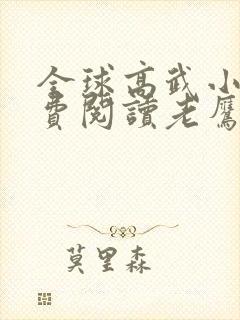 全球高武小
費閱讀老鷹
莫里森